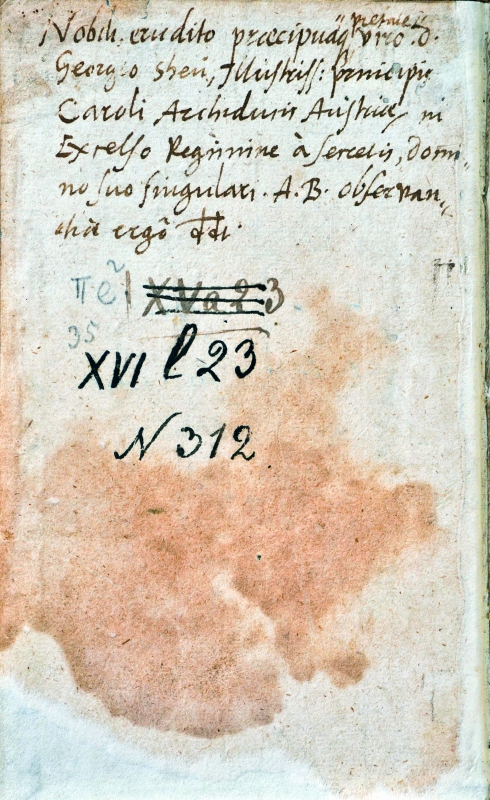 Nobili, erudito præcipuaq́ʒ pietate viro .d.
Georgio Sheü, Illustriss: principis
Caroli Archiducis Austriæ, in
Excelso Regimine à secretis, domi-
no suo singulari. A.B. observan-
tiæ ergô dd.
πe² XVa23
35
XVI l 23
N 312